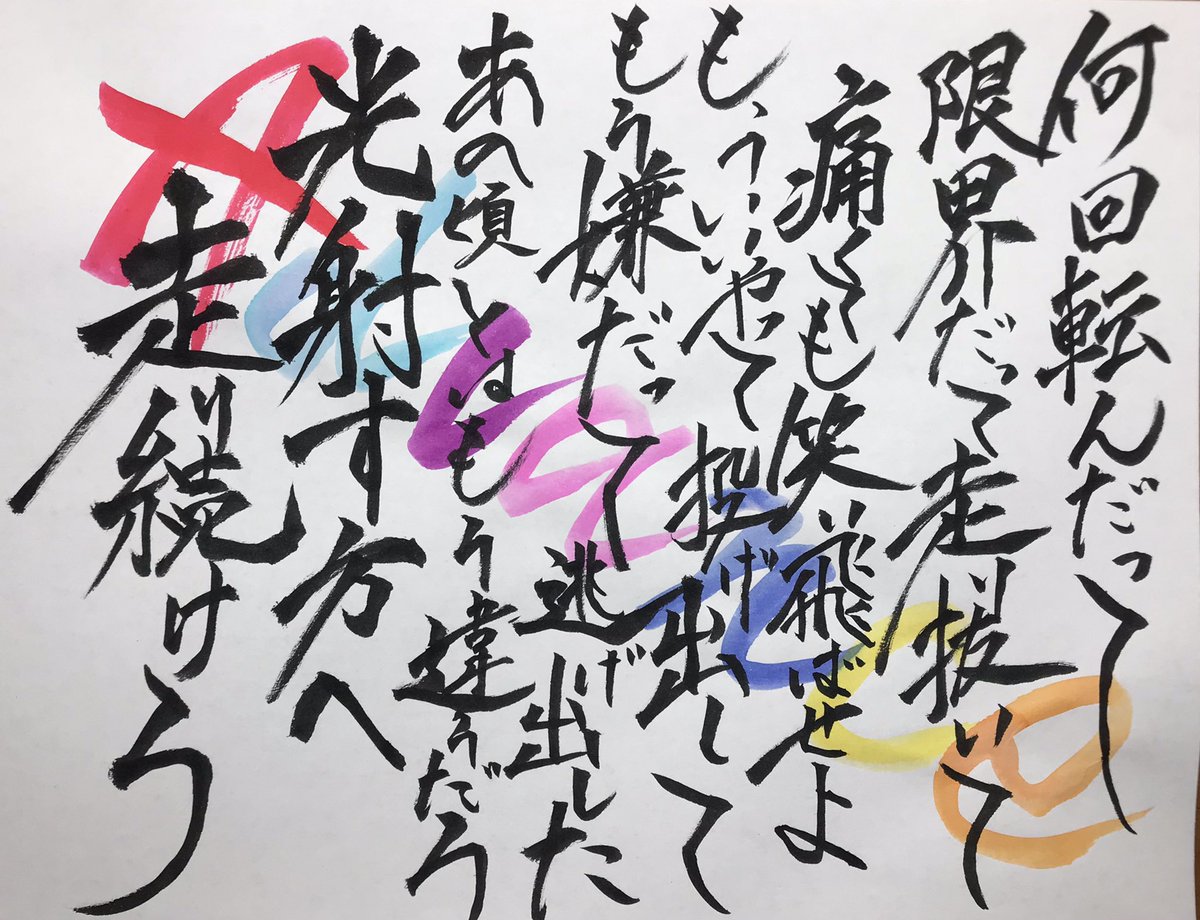 何回転んだって
限界だって走り抜いて
痛くても笑い飛ばせよ
もういいやって投げ出して
もう嫌だって逃げ出した
あの頃とはもう違うだろう
光射す方へ
走り続けろ